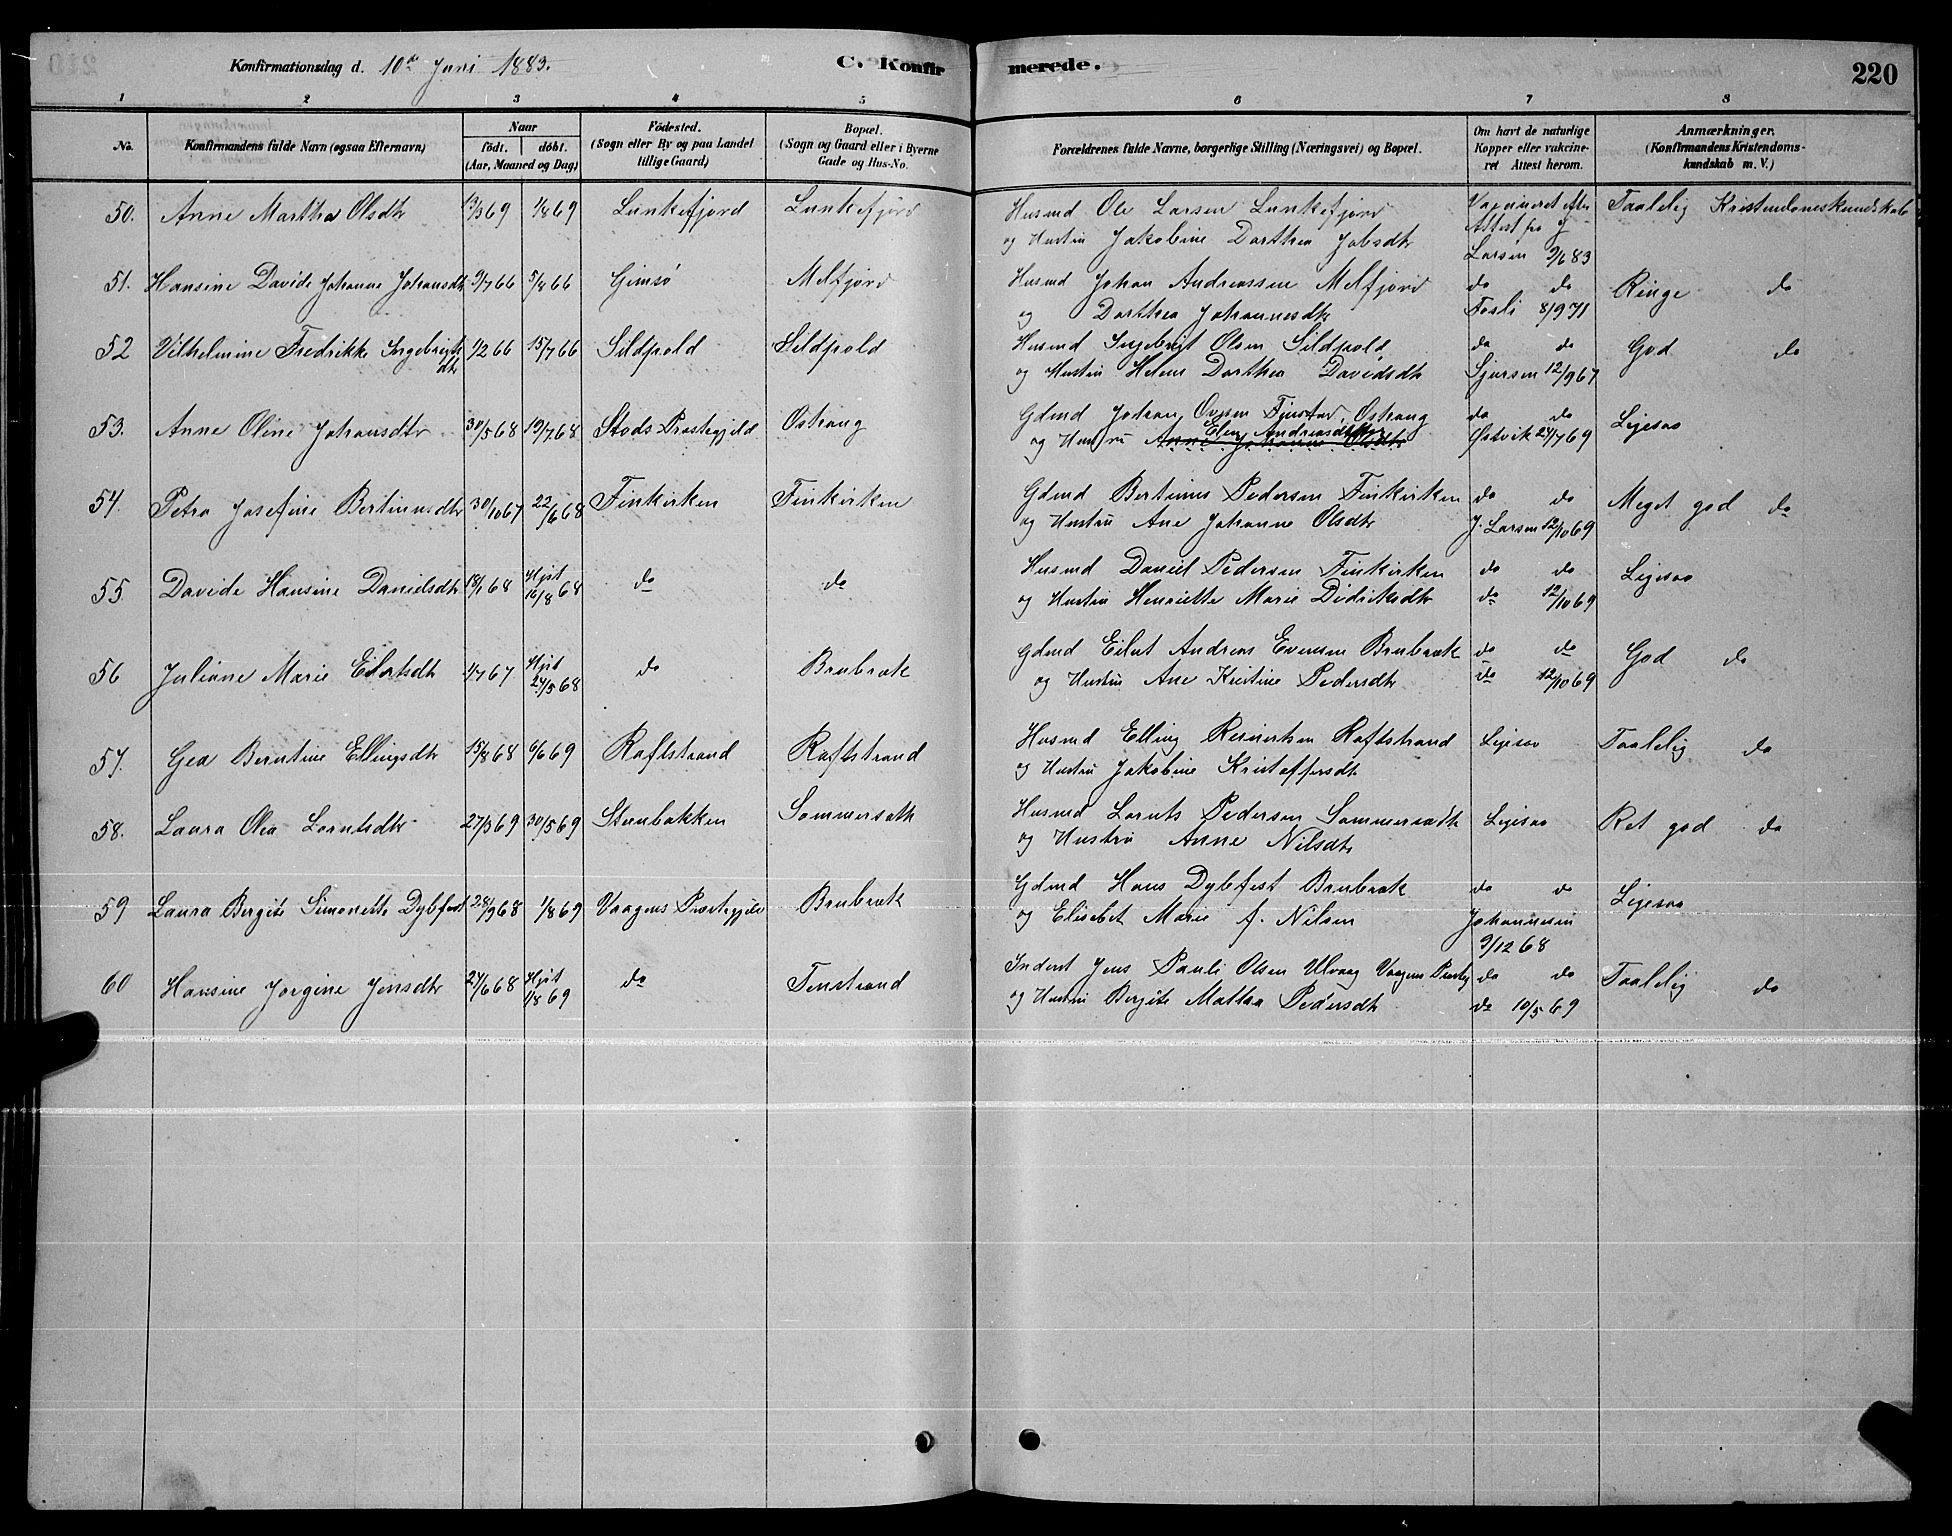 Konfirmationsdag d. 10de Juni 1883.
C. Konfirmerede.
220
1 2 3 4 5 6 7 8
No.
Konfirmandens fulde Navn (ogsaa Efternavn)
Naar
födt. döbt.
(Aar, Maaned og Dag)
Födested.
(Sogn eller By og paa Landet
tillige Gaard)
Bopæl.
(Sogn og Gaard eller i Byerne
Gade og Hus-No.
Forældrenes fulde Navne, borgerlige Stilling (Næringsvei) og Bopæl.
Om havt de naturlige
Kopper eller vakcine-
ret Attest herom.
Anmærkninger.
(Konfirmandens Kristendoms-
kundskab m. V.)
50. Anne Martha Olsdtr 13/3 69 1/8 69 Lunkefjord Lunkefjord Husmd Ole Larsen Lunkefjord Vaxcineret efter Taalelig Kristendomskundskab
og Hustru Jakobine Dorthea Jobsdtr Attest fra J
Larsen 9/6 83
51. Hansine Davide Johanne Johansdtr 9/7 66 5/8 66 Gimsø Melfjord Husmd Johan Andreassen Melfjord do do Ringe do
og Dorthea Johannesdtr Fosli 8/9 71
52 Vilhelmine Fredrikke Ingebrigts 1/2 66 15/7 66 Sildpold Sildpold Husmd Ingebrigt Olsen Sildpold do do God do
dtr og Hustru Helene Dorthea Davidsdtr Sjursen 12/9 67
53. Anne Oline Johansdtr 30/5 68 19/7 68 Stods Prestegjeld Ostrang Gdmd Johan Ovesen Finstad, Ostrang do do Ligesaa
og Hustru Anne Johanne Olsdtr Elen Andreasdatter Østvik 24/7 69
54. Petra Josefine Bertinusdtr 30/10 67 22/6 68 Finkirken Finkirken Gdmd Bertinus Pedersen Finkirken do do Meget god do
og Hustru Ane Johanne Olsdtr J. Larsen 12/10 69
55. Davide Hansine Danielsdtr 18/1 68 Hjdt 16/8 68 do do Husmd Daniel Pedersen Finkirken do do Ligesaa
og Hustru Henriette Marie Didriksdtr do 12/10 69
56 Juliane Marie Eilertsdtr 4/7 67 Hjdt 24/5 68 do Brubræk Gdmd Eilert Andreas Evensen Brubræk do do God do
og Hustru Ane Kristine Pedersdtr do 12/10 69
57. Gea Berntine Ellingsdtr 15/8 68 6/6 69 Raftstrand Raftstrand Husmd Elling Reinertsen Raftstrand Ligesaa Taalelig do
og Hustru Jakobine Kristoffersdtr
58. Laura Olea Lorntsdtr 27/3 69 30/5 69 Stenbakken Sommersæth Husmd Lornts Pedersen Sommersædt Ligesaa Ret god do
og Hustru Anne Nilsdtr
59 Laura Bergite Simonette Dybfest 28/9 68 1/8 69 Vaagens Prestegjeld Brubræk Gdmd Hans Dybfest Brubræk do do Ligesaa
og Elisabet Marie f. Nilsen Johannesen
9/12 68
60 Hansine Jorgine Jensdtr 24/6 68 Hjdt 1/8 69 do Tenstrand Inderst Jens Pauli Olsen Ulvaag Vaagens Prestg do do Taalelig do
og Hustru Bergite Mattea Pedersdtr do 10/5 69